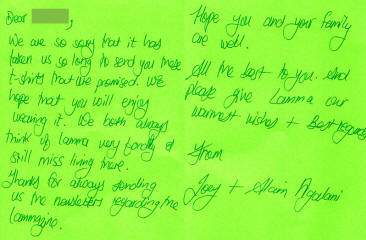 Dear
We are so sorry that it has
taken us so long to send you these
t-shirts that we promised. We
hope that you will enjoy
wearing it. We both always
think of Lamma very fondly &
still miss living there.
Thanks for always sending
us the newsletters regarding the
Lammazine.
Hope you and your family
are well.
All the best to you. And
please give Lamma our
warmest wishes + Best regards
From
Joey + Alain Ngalani